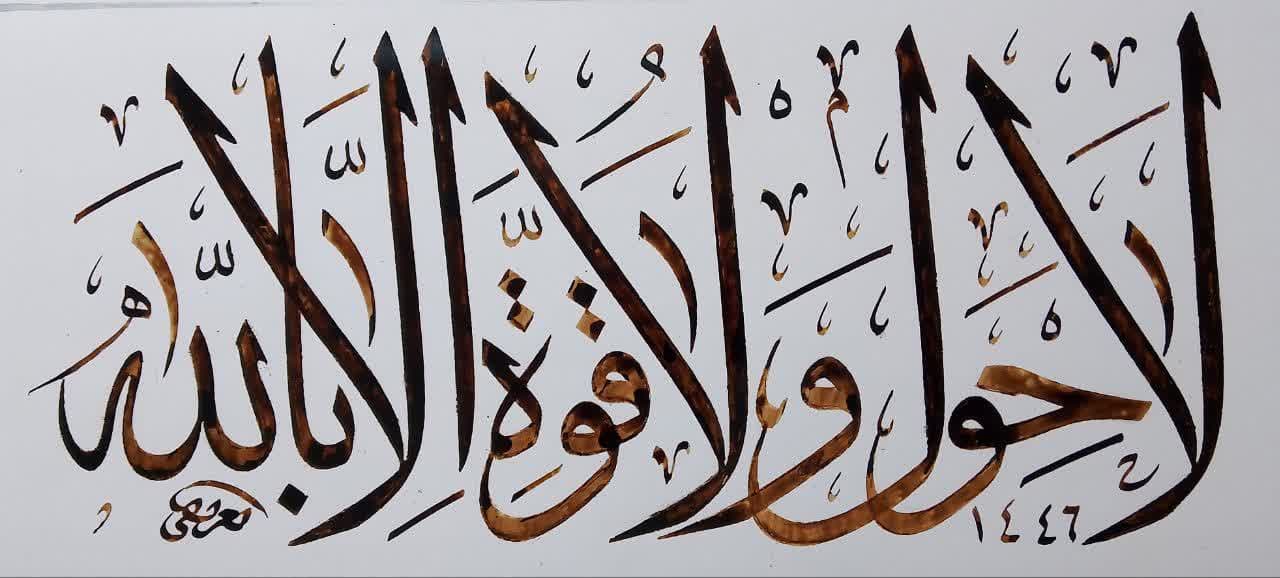 لا حول ولا قوة الا بالله
١٤٤٦